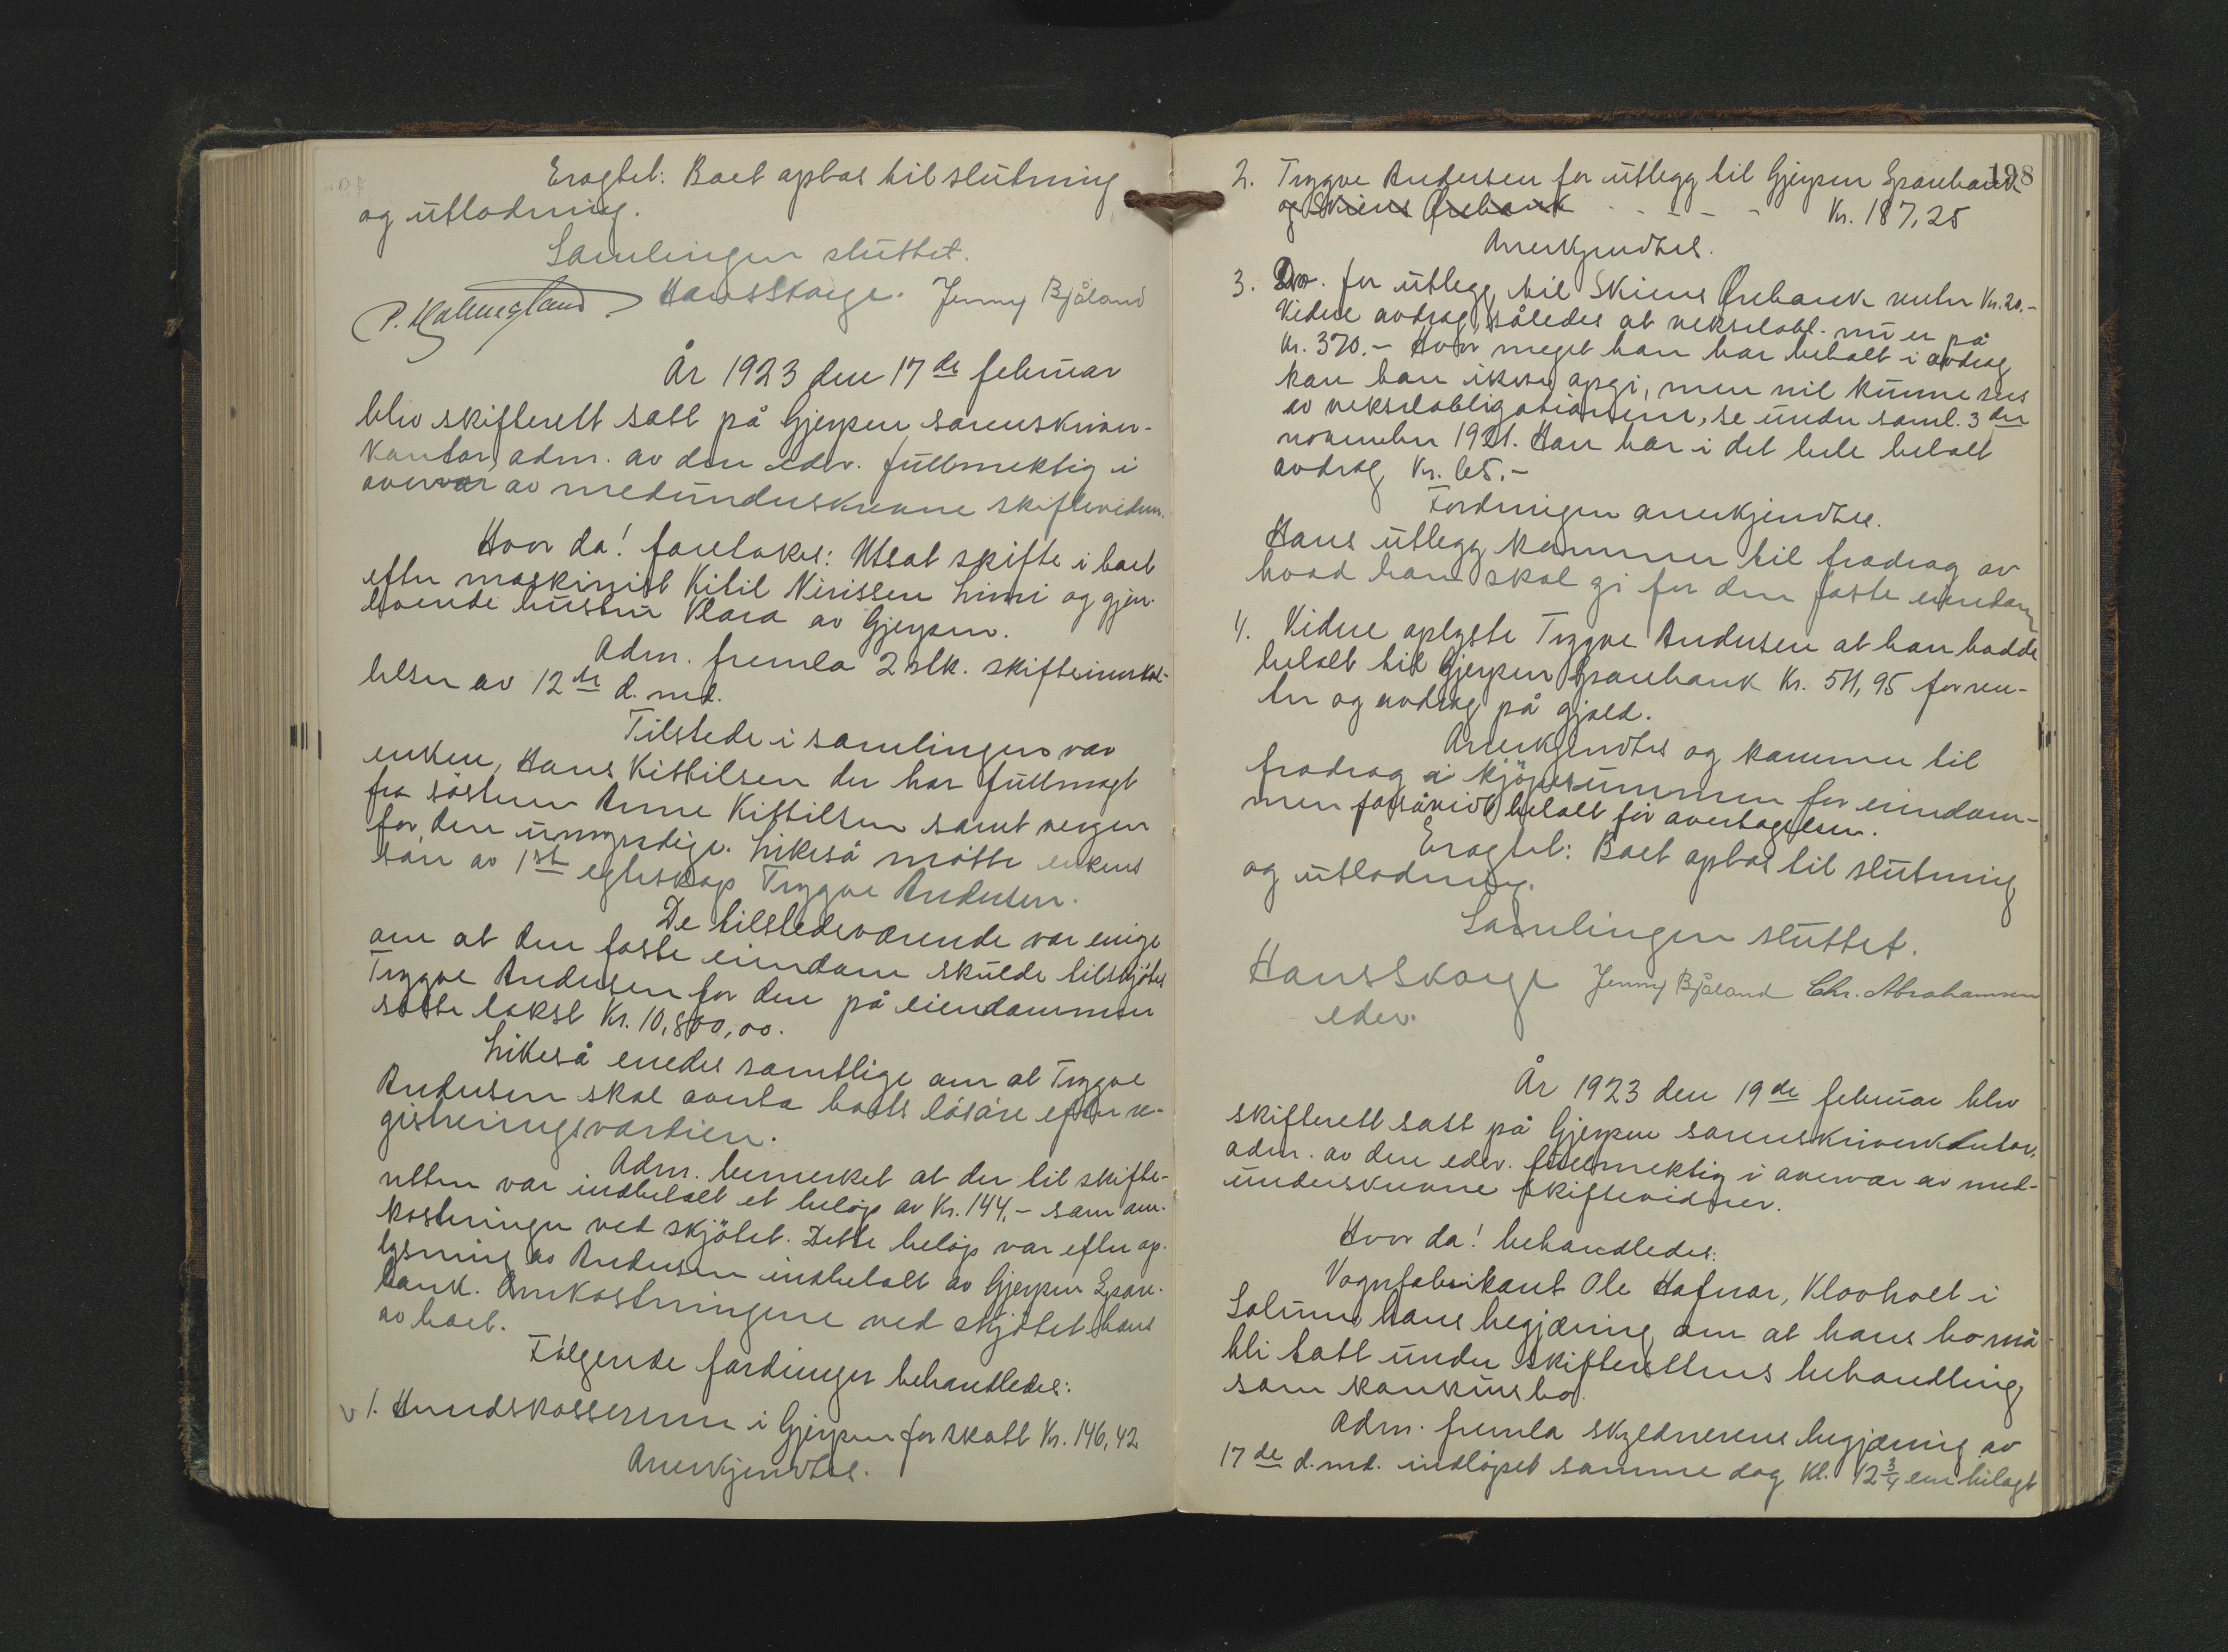 Eragtet: Boet optas til slutning
og utlodning.
Samlingen sluttet.
Hans Skarge. Jenny Bjåland
År 1923 den 17de februar
blev skifterett satt på Gjerpen sorenskriver-
kontor, adm. av den edsv. fullmektig i
overvær av medunderskrevne skiftevidner.
Hvor da! foretokes: Utsat skifte i boet
efter maskinist Kitil Nirissen Limi og gjen-
levende hustru Klara av Gjerpen.
Adm. fremla 2 stk. skifteinnkal-
lelser av 12te d. md.
Tilstede i samlingen var
enken, Hans Kittilsen der har fullmagt
fra søsteren Anne Kittilsen samt vergen
for den umyndige. Likeså møtte enkens
sön av 1ste egteskap Trygve Andersen.
De tilstedeværende var enige
om at den faste eiendom skulde tilskjötes
Trygve Andersen for den på eiendommen
satte takst Kr. 10,800,00.
Likeså enedes samtlige om at Trygve
Andersen skal overta boets lösöre efter re-
gistreringsværdien.
Adm. bemerket at der til skifte-
retten var indbetalt et belöp av Kr. 144,- som om-
kostninger ved skjötet. Dette belöp var efter op-
lysning av Andersen indbetalt av Gjerpen Spare-
bank. Omkostningene ved skjötet
av boet.
Følgende fordringer behandledes:
v 1. Herredskassereren i Gjerpen for skatt Kr. 146,42
Anerkjendtes.
198
2. Trygve Andersen for utlegg til Gjerpen Sparebank
og Skiens Ørebank - - - - - Kr. 187,25
Anerkjendtes.
3. Do. for utlegg til Skiens Ørebank renter Kr. 20.-
Videre avdrag, således at vekselobl. nu er på
Kr. 370.- Hvor meget han har betalt i avdrag
kan han ikke opgi, men vil kunne sees
av vekselobligationene, se under saml. 3die
november 1921. Han har i det hele betalt
avdrag Kr. 65.-
Fordringen anerkjendtes.
Hans utlegg kommer til fradrag av
hvad han skal gi for den faste eiendom
4. Videre oplyste Trygve Andersen at han hadde
betalt til Gjerpen Sparebank Kr. 511,95 for ren-
ter og avdrag på gjæld.
Anerkjendtes og kommer til
fradrag i kjöpesummen for eiendom-
men forsåvidt betalt för overtagelsen.
Eragtet: Boet optas til slutning
og utlodning.
Samlingen sluttet.
Hans Skarge Jenny Bjåland Chr. Abrahamsen
edsv.
År 1923 den 19de februar blev
skifterett satt på Gjerpen sorenskriverkontor,
adm. av den edsv. fullmektig i overvær av med-
underskrevne skiftevidner.
Hvor da! behandledes:
Vognfabrikant Ole Hafnar, Klovholt i
Solum, hans begjæring om at hans bo må
bli tatt under skifterettens behandling
som konkursbo.
Adm. fremla skyldnerens begjæring av
17de d. md. indløpet samme dag Kl. 12 3/4 em. bilagt